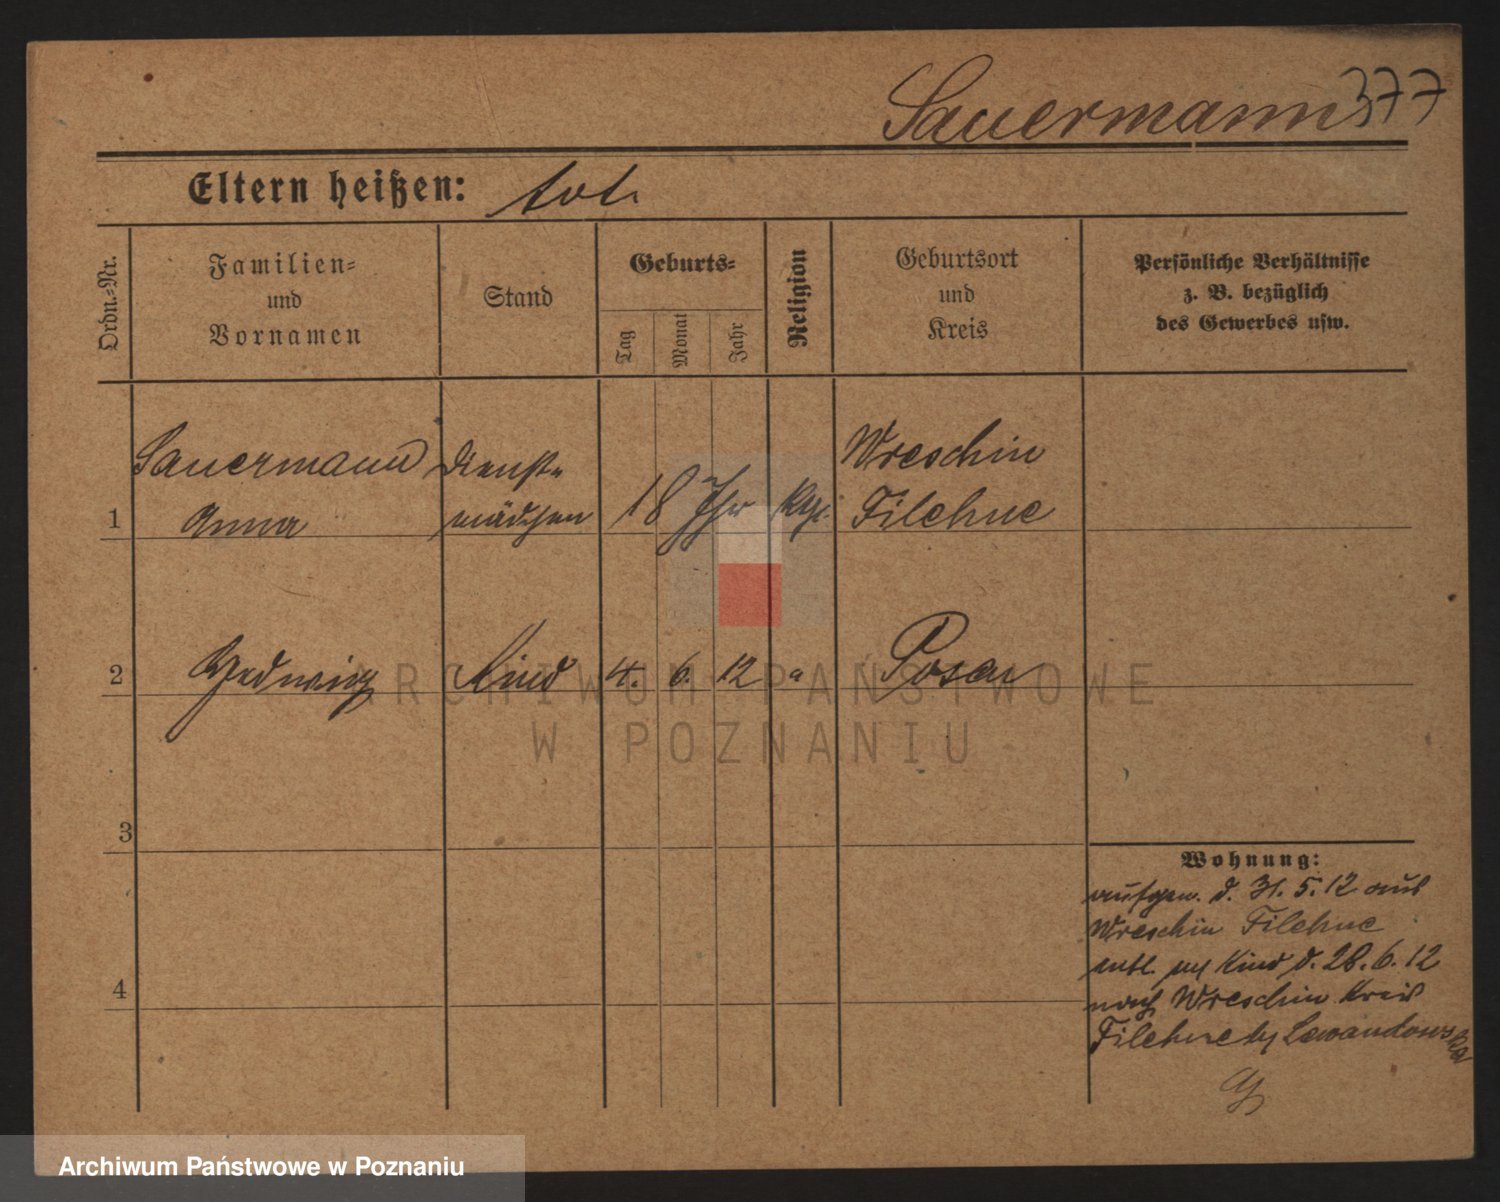 Sauermann 377
Eltern heißen: tot.
Ordn.-Nr.
Familien-
und
Vornamen
Stand
Geburts-
Tag
Monat
Jahr
Religion
Geburtsort
und
Kreis
Persönliche Verhältnisse
z. B. bezüglich
des Gewerbes usw.
Sauermann Dienst- Wreschin
1 Anna mädchen 18 Jhr Filehne
2 Hedwig Kind 4. 6. 12 " Posen
3
4
Wohnung:
aufgen. d. 31. 5. 12 aus
Wreschin Filehne
entl. Kind d. 28. 6. 12
nach Wreschin Kreis
Filehne Lewandowska
ARCHIWUM PAŃSTWOWE
W POZNANIU
Archiwum Państwowe w Poznaniu